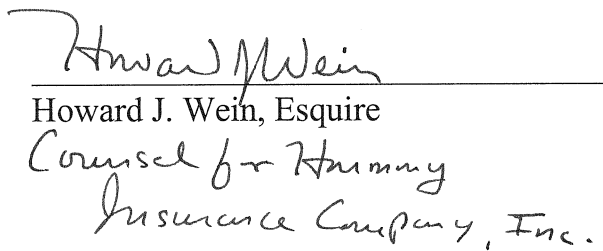 Howard J Wein
Howard J. Wein, Esquire
Counsel for Harmony
Insurance Company, Inc.